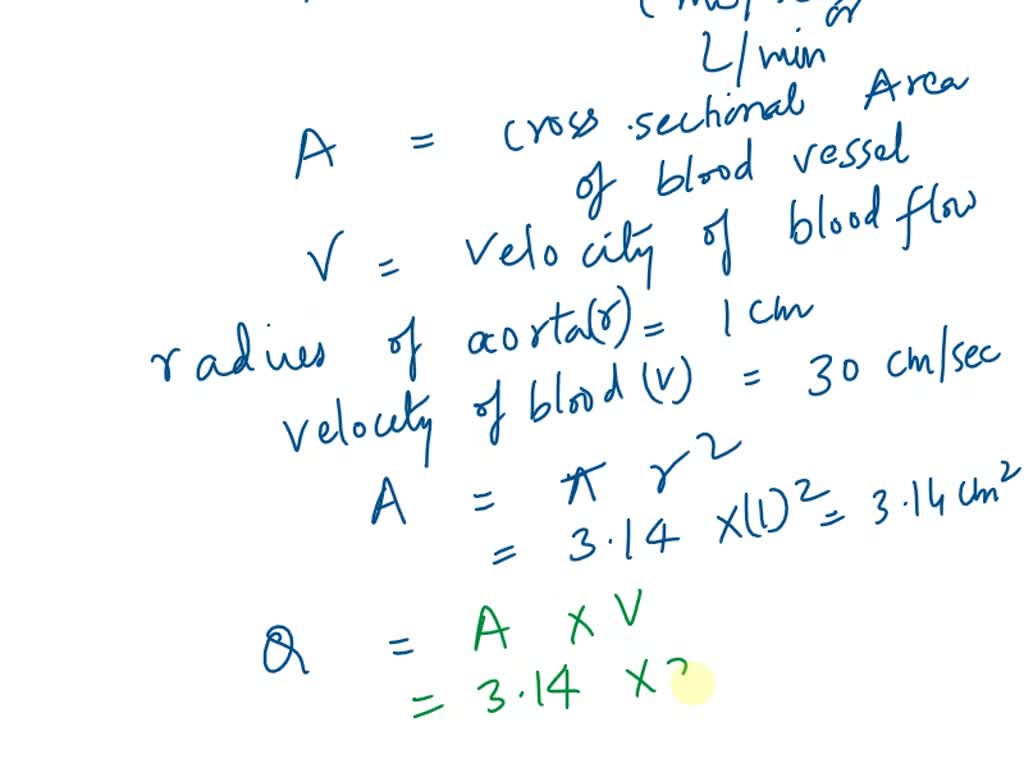 or
L/min
A = cross.sectional Area
of blood vessel
V = velocity of blood flow
radius of aorta(r) = 1 cm
velocity of blood (v) = 30 cm/sec
A = π r²
= 3.14 x(1)² = 3.14 cm²
Q = A x V
= 3.14 x